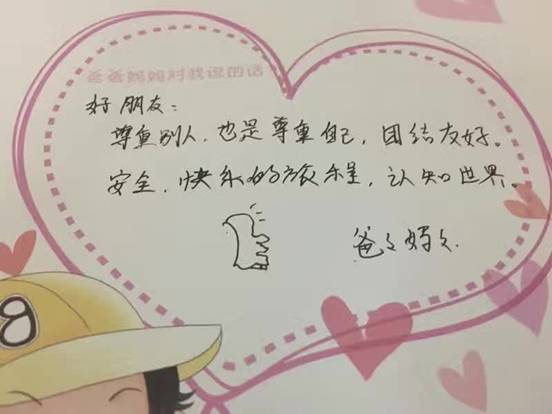 爸爸妈妈对我说的话
好朋友：
尊重别人，也是尊重自己，团结友好。
安全，快乐的旅程，认知世界。
爸々妈々.
B